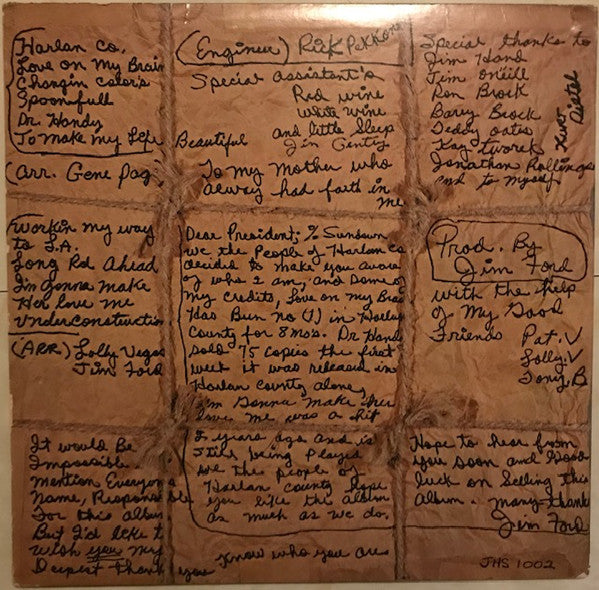 Harlan Co.
Love on My Brain
Changin Color's
Spoonfull
Dr. Handy
To Make My Life Beautiful
(Arr. Gene Pag)
(Engineer) Rick Pekkonen
Special assistant's
Red wine
White wine
and little Sleep
Jim Gentry
To my Mother who
alway had faith in
me
Special thanks to
Jim Hand
Jim oneill
Ron Brock
Barry Brock
Teddy oates
Kay
Jonathan Rollings
and to myself
Workin my way
to L.A.
Long Rd Ahead
I'm Gonna Make
Her Love me
Underconstruction
(ARR) Lolly Vegas
Jim Ford
Dear President: % Sundown
We the People of Harlan Co
decided to make you aware
of who I am, and some of
my credits, Love on My Brain
Has Bun no (1) in Harlan
County for 8 Mo's. Dr Handy
sold 75 copies the first
week it was released in
Harlan County alone,
I'm Gonna Make Her
Love me was a hit
2 years ago and is
still being Played
We the people of
Harlan County hope
you like this album
as much as we do.
Prod. By
Jim Ford
with the help
of My Good
Friends Pat. V
Lolly. V
Tony, B
It would Be
Impossible
Mention Everyone
Name, Responsible
For this album
But I'd like to
wish you my
Deepest thank you
Know who you are
Hope to hear from
you soon and Good
luck on Selling this
album. Many-thank
Jim Ford
JHS 1002